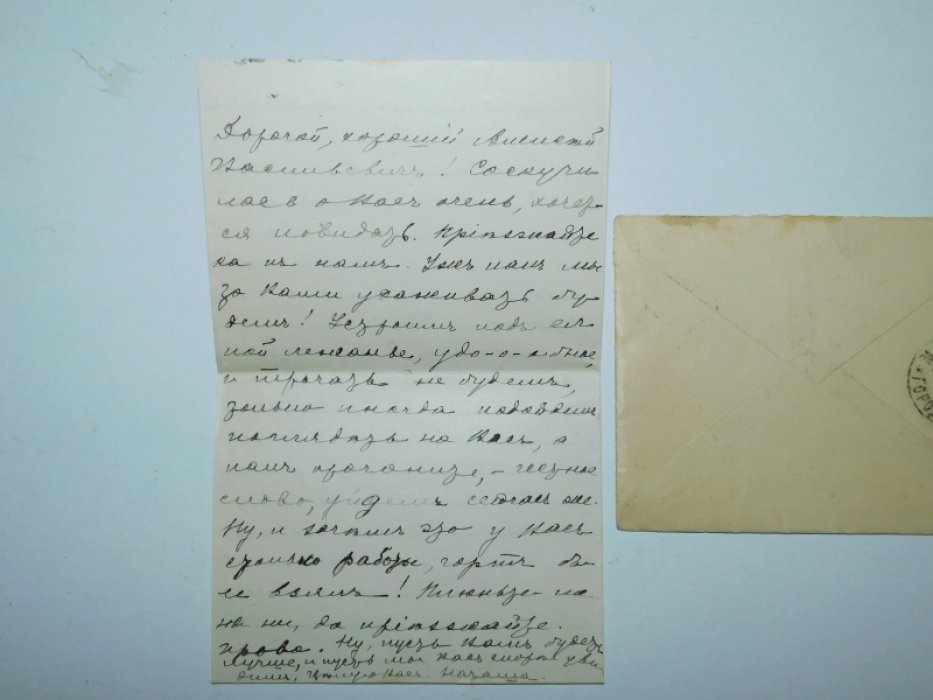 Дорогой, хорошій Алексѣй
Васильевичъ! Соскучи
лась о Васъ очень, хочет-
ся повидать. Пріѣзжайте
ка къ намъ. Ужъ какъ мы
за Вами ухаживать бу-
демъ! Устроимъ подъ ел
кой лежанье, удо-о-обное,
и трогать не будемъ,
только иногда подойдемъ
поглядѣть на Васъ, а
какъ прогоните, – честное
слово, уйдемъ сейчасъ же.
Ну, и зачѣмъ это у Васъ
столько работы, чортъ бы
ее взялъ! Плюньте на
на ни, да пріѣзжайте.
право. Ну, пусть Вамъ будетъ
лучше, и пусть мы Васъ скоро уви
димъ, цѣлую Васъ. Наташа.
ГОРОД